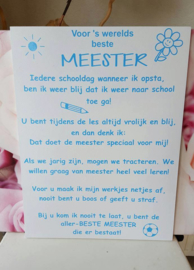 Voor 's werelds
beste
MEESTER
Iedere schooldag wanneer ik opsta,
ben ik weer blij dat ik weer naar school
toe ga!
U bent tijdens de les altijd vrolijk en blij,
en dan denk ik:
Dat doet de meester speciaal voor mij!
Als we jarig zijn, mogen we tracteren. We
willen graag van meester heel veel leren!
Voor u maak ik mijn werkjes netjes af,
nooit bent u boos of geeft u straf.
Bij u kom ik nooit te laat, u bent de
aller-BESTE MEESTER
die er bestaat!